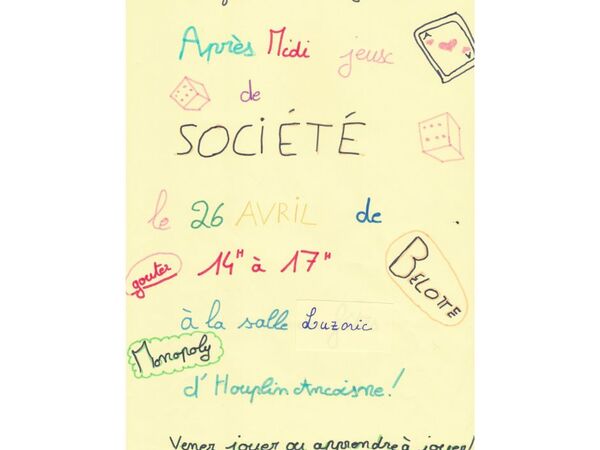 Après Midi jeux
de
SOCIÉTÉ
le 26 AVRIL de
goûter
14H à 17H
BELOTTE
à la salle Luzoric
Monopoly
d'Houplin Ancoisne!
Vener jouer ou apprendre à jouer!